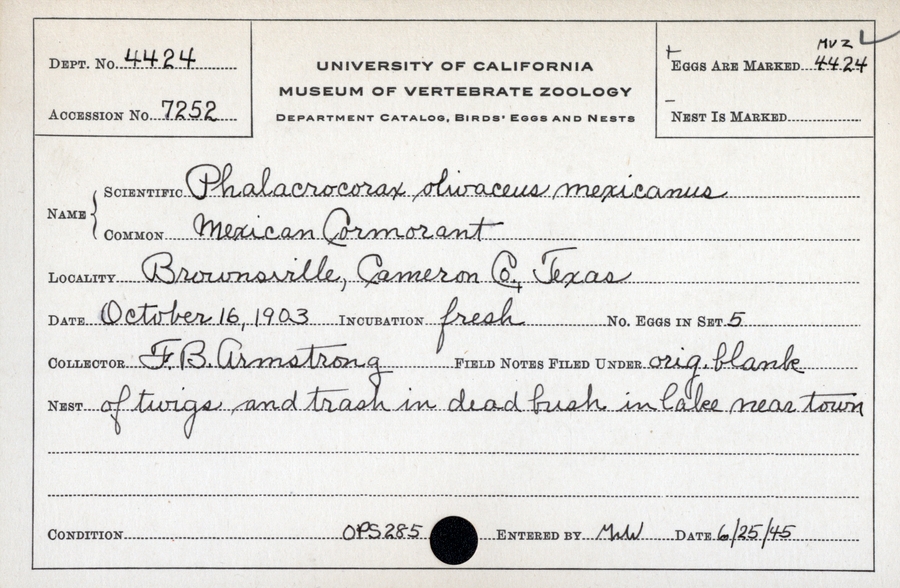 Dept. No. 4424
Accession No. 7252
UNIVERSITY OF CALIFORNIA
MUSEUM OF VERTEBRATE ZOOLOGY
Department Catalog, Birds' Eggs and Nests
MVZ
+ Eggs Are Marked 4424
– Nest Is Marked
Name { Scientific Phalacrocorax olivaceus mexicanus
Common Mexican Cormorant
Locality Brownsville, Cameron Co., Texas
Date October 16, 1903 Incubation fresh No. Eggs in Set 5
Collector F. B. Armstrong Field Notes Filed Under orig. blank
Nest of twigs and trash in dead bush in lake near town
Condition OPS285 Entered by Date 6/25/45